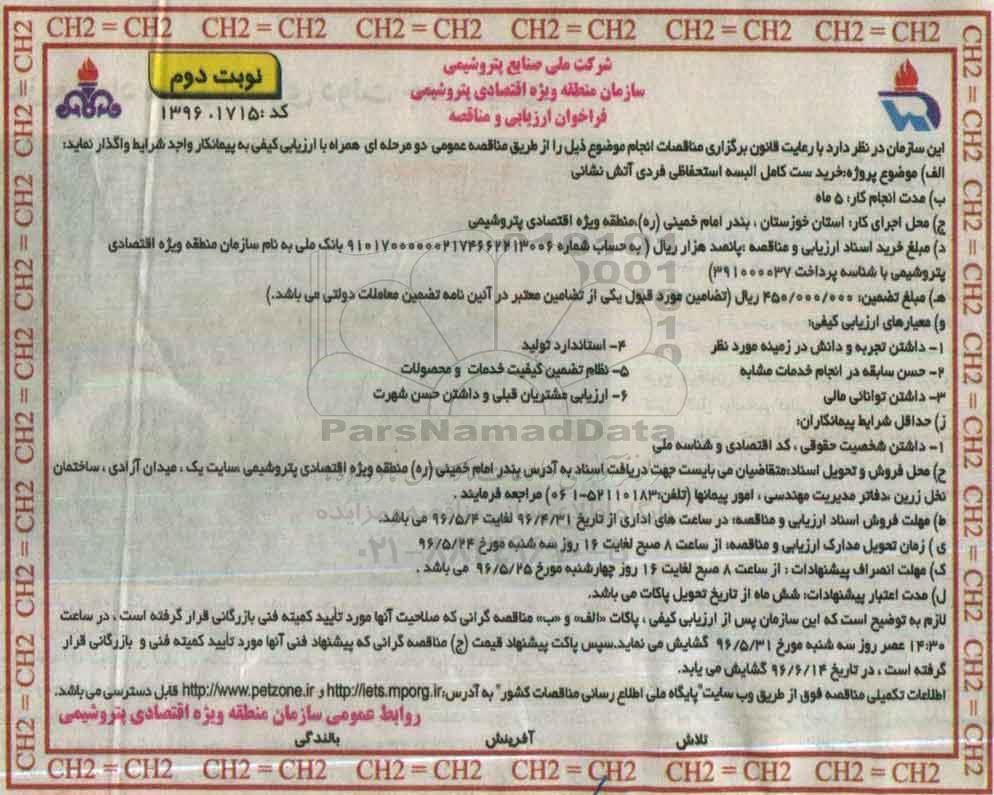 CH2 = CH2 CH2 = CH2 CH2 = CH2 CH2 = CH2 CH2 = CH2 CH2 = CH2
شرکت ملی صنایع پتروشیمی
سازمان منطقه ویژه اقتصادی پتروشیمی
فراخوان ارزیابی و مناقصه
نوبت دوم
کد :۱۳۹۶.۱۷۱۵
این سازمان در نظر دارد با رعایت قانون برگزاری مناقصات انجام موضوع ذیل را از طریق مناقصه عمومی دو مرحله ای همراه با ارزیابی کیفی به پیمانکار واجد شرایط واگذار نماید:
الف) موضوع پروژه:خرید ست کامل البسه استحفاظی فردی آتش نشانی
ب) مدت انجام کار: ۵ ماه
ج) محل اجرای کار: استان خوزستان ، بندر امام خمینی (ره)،منطقه ویژه اقتصادی پتروشیمی
د) مبلغ خرید اسناد ارزیابی و مناقصه :پانصد هزار ریال ( به حساب شماره ۹۱۰۱۷۰۰۰۰۰۰۲۱۷۴۶۶۲۲۱۳۰۰۶ بانک ملی به نام سازمان منطقه ویژه اقتصادی
پتروشیمی با شناسه پرداخت ۳۹۱۰۰۰۰۳۷)
هـ) مبلغ تضمین: ۴۵۰/۰۰۰/۰۰۰ ریال (تضامین مورد قبول یکی از تضامین معتبر در آئین نامه تضمین معاملات دولتی می باشد.)
و) معیارهای ارزیابی کیفی:
۱- داشتن تجربه و دانش در زمینه مورد نظر ۴- استاندارد تولید
۲- حسن سابقه در انجام خدمات مشابه ۵- نظام تضمین کیفیت خدمات و محصولات
۳- داشتن توانائی مالی ۶- ارزیابی مشتریان قبلی و داشتن حسن شهرت
ز) حداقل شرایط پیمانکاران:
ParsNamadData
۱- داشتن شخصیت حقوقی ، کد اقتصادی و شناسه ملی
ح) محل فروش و تحویل اسناد:متقاضیان می بایست جهت دریافت اسناد به آدرس بندر امام خمینی (ره) منطقه ویژه اقتصادی پتروشیمی ،سایت یک ، میدان آزادی ، ساختمان
نخل زرین ،دفاتر مدیریت مهندسی ، امور پیمانها (تلفن:۵۲۱۱۰۱۸۳-۰۶۱) مراجعه فرمایند .
ط) مهلت فروش اسناد ارزیابی و مناقصه: در ساعت های اداری از تاریخ ۹۶/۴/۳۱ لغایت ۹۶/۵/۴ می باشد.
ی ) زمان تحویل مدارک ارزیابی و مناقصه: از ساعت ۸ صبح لغایت ۱۶ روز سه شنبه مورخ ۹۶/۵/۲۴
ک) مهلت انصراف پیشنهادات : از ساعت ۸ صبح لغایت ۱۶ روز چهارشنبه مورخ ۹۶/۵/۲۵ می باشد .
ل) مدت اعتبار پیشنهادات: شش ماه از تاریخ تحویل پاکات می باشد.
لازم به توضیح است که این سازمان پس از ارزیابی کیفی ، پاکات «الف» و «ب» مناقصه گرانی که صلاحیت آنها مورد تأیید کمیته فنی بازرگانی قرار گرفته است ، در ساعت
۱۴:۳۰ عصر روز سه شنبه مورخ ۹۶/۵/۳۱ گشایش می نماید.سپس پاکت پیشنهاد قیمت (ج) مناقصه گرانی که پیشنهاد فنی آنها مورد تأیید کمیته فنی و بازرگانی قرار
گرفته است ، در تاریخ ۹۶/۶/۱۴ گشایش می یابد.
اطلاعات تکمیلی مناقصه فوق از طریق وب سایت"پایگاه ملی اطلاع رسانی مناقصات کشور" به آدرس:http://iets.mporg.ir و http://www.petzone.ir قابل دسترسی می باشد.
روابط عمومی سازمان منطقه ویژه اقتصادی پتروشیمی
تلاش آفرینش بالندگی
CH2 = CH2 CH2 = CH2 CH2 = CH2 CH2 = CH2 CH2 = CH2 CH2 = CH2